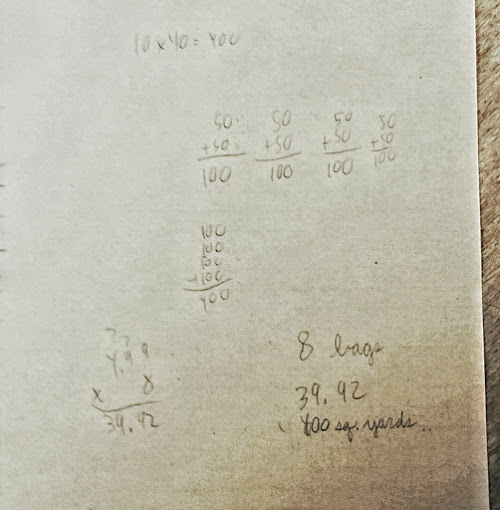 10 x 40 = 400
50 50 50 50
+50 +50 +50 +50
100 100 100 100
100
100
100
+100
400
77
4.99
x 8
39.92
8 bags
39.92
400 sq. yards